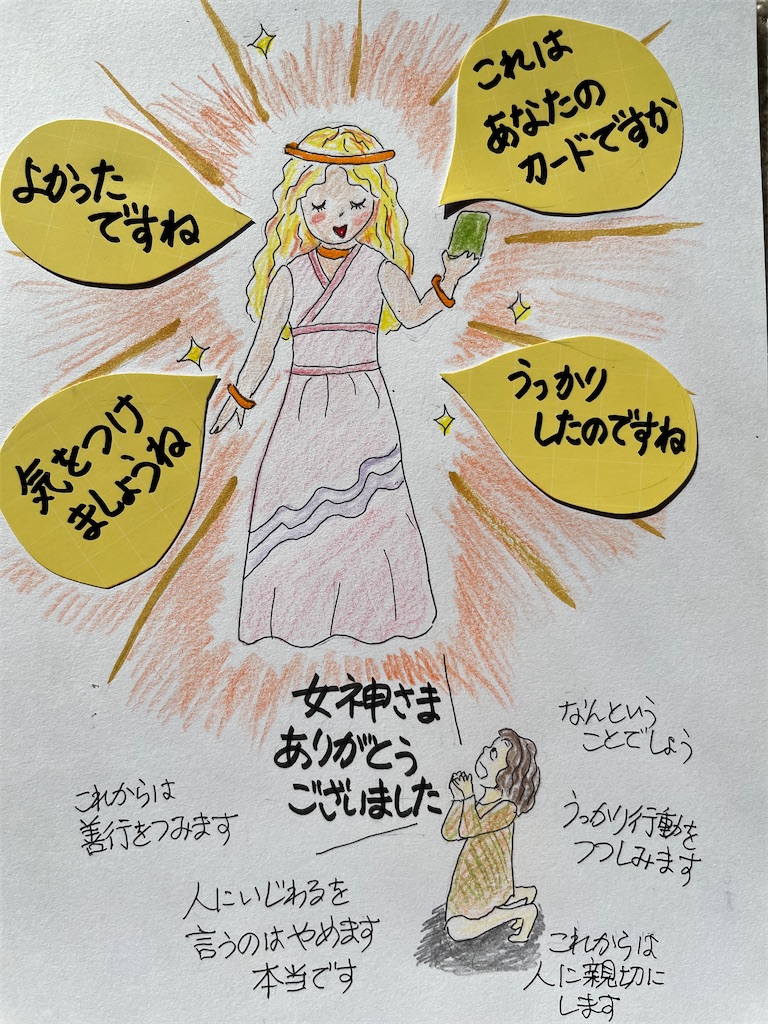 これは
あなたの
カードですか
よかった
ですね
うっかり
したのですね
気をつけ
ましょうね
女神さま
ありがとう
ございました
なんという
ことでしょう
これからは
善行をつみます
うっかり行動を
つつしみます
人にいじわるを
言うのはやめます
本当です
これからは
人に親切に
します